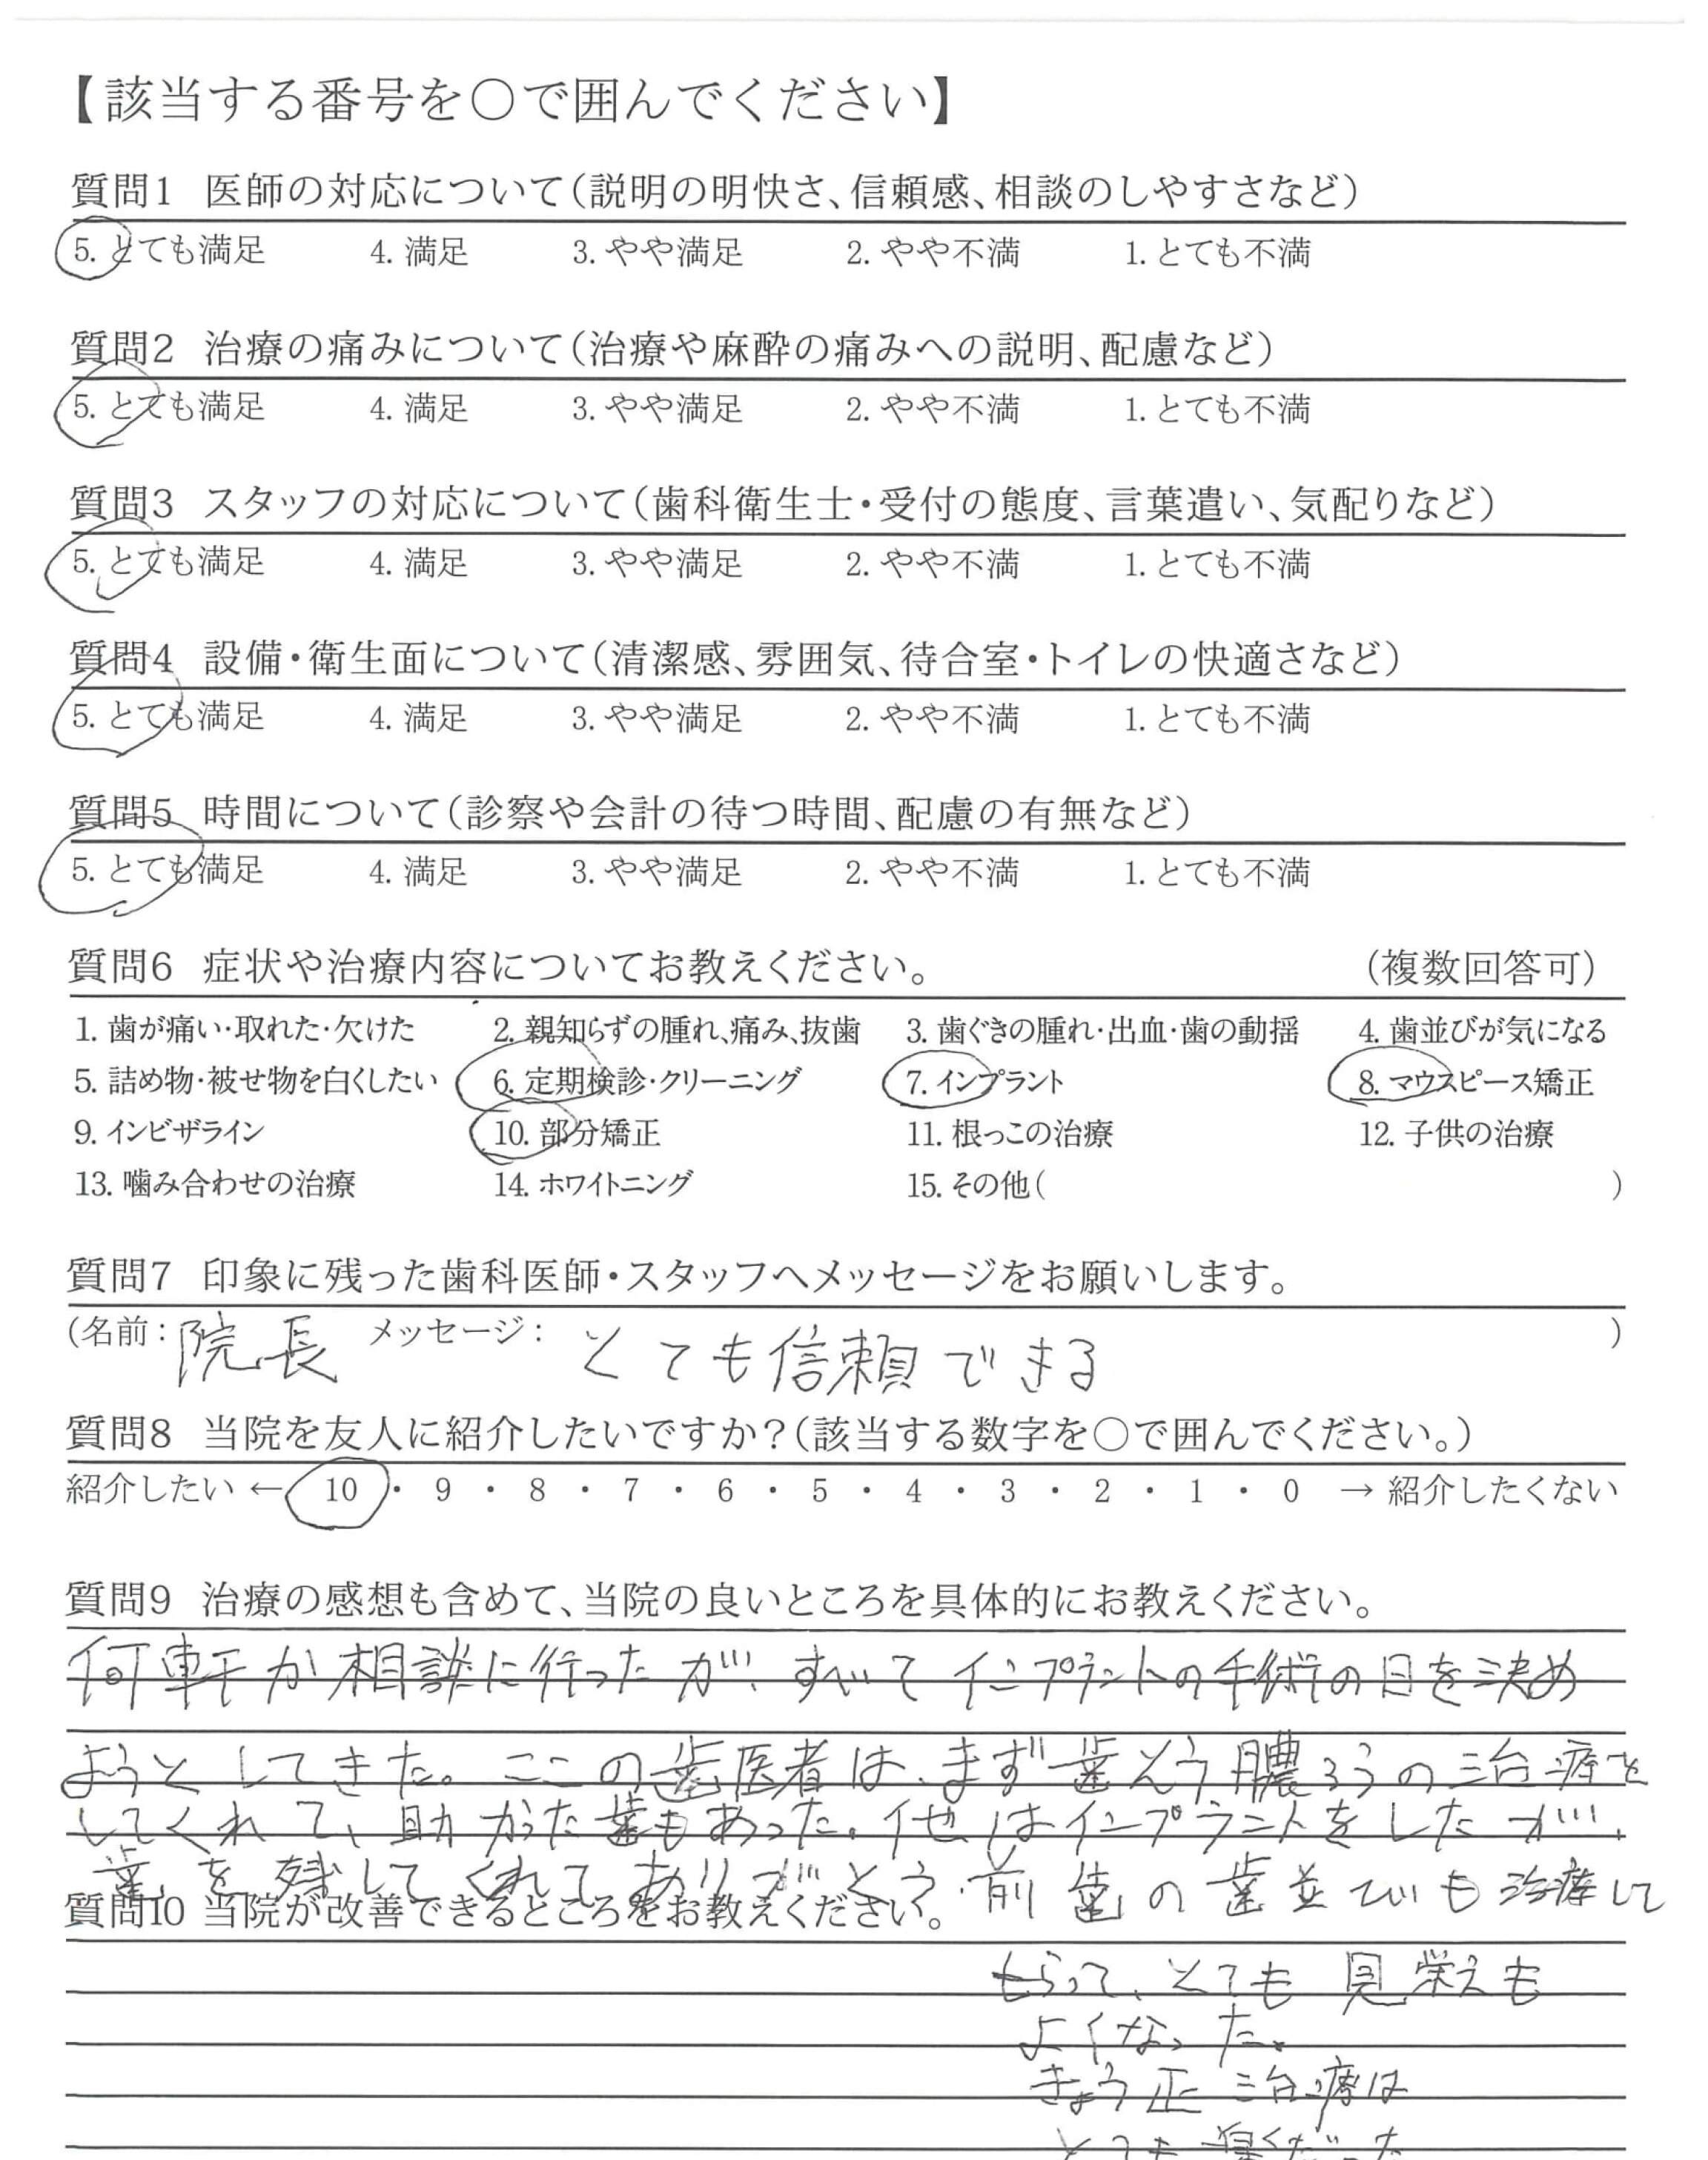 【該当する番号を○で囲んでください】
質問1 医師の対応について(説明の明快さ、信頼感、相談のしやすさなど)
5. とても満足 4. 満足 3. やや満足 2. やや不満 1. とても不満
質問2 治療の痛みについて(治療や麻酔の痛みへの説明、配慮など)
5. とても満足 4. 満足 3. やや満足 2. やや不満 1. とても不満
質問3 スタッフの対応について(歯科衛生士・受付の態度、言葉遣い、気配りなど)
5. とても満足 4. 満足 3. やや満足 2. やや不満 1. とても不満
質問4 設備・衛生面について(清潔感、雰囲気、待合室・トイレの快適さなど)
5. とても満足 4. 満足 3. やや満足 2. やや不満 1. とても不満
質問5 時間について(診察や会計の待つ時間、配慮の有無など)
5. とても満足 4. 満足 3. やや満足 2. やや不満 1. とても不満
質問6 症状や治療内容についてお教えください。 (複数回答可)
1. 歯が痛い・取れた・欠けた 2. 親知らずの腫れ、痛み、抜歯 3. 歯ぐきの腫れ・出血・歯の動揺 4. 歯並びが気になる
5. 詰め物・被せ物を白くしたい 6. 定期検診・クリーニング 7. インプラント 8. マウスピース矯正
9. インビザライン 10. 部分矯正 11. 根っこの治療 12. 子供の治療
13. 噛み合わせの治療 14. ホワイトニング 15. その他( )
質問7 印象に残った歯科医師・スタッフへメッセージをお願いします。
(名前: 院長 メッセージ: とても信頼できる )
質問8 当院を友人に紹介したいですか?(該当する数字を○で囲んでください。)
紹介したい ← 10 ・ 9 ・ 8 ・ 7 ・ 6 ・ 5 ・ 4 ・ 3 ・ 2 ・ 1 ・ 0 → 紹介したくない
質問9 治療の感想も含めて、当院の良いところを具体的にお教えください。
何軒か相談に行ったが、すべてインプラントの手術の日を決め
ようとしてきた。ここの歯医者は、まず歯そう膿ろうの治療を
してくれて、助かった歯もあった。他はインプラントをしたが、
歯を残してくれてありがとう。前歯の歯並びも治療して
質問10 当院が改善できるところをお教えください。
もらって、とても見栄えも
よくなった。
きょう正治療は
とても